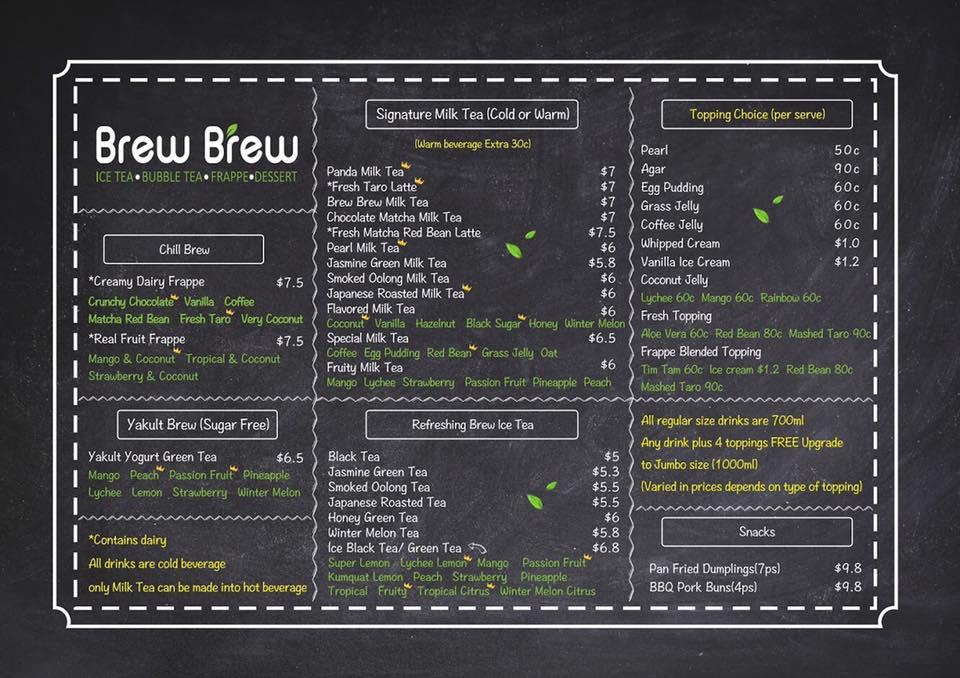 Brew Brew
ICE TEA•BUBBLE TEA•FRAPPE•DESSERT
Chill Brew
*Creamy Dairy Frappe $7.5
Crunchy Chocolate Vanilla Coffee
Matcha Red Bean Fresh Taro Very Coconut
*Real Fruit Frappe $7.5
Mango & Coconut Tropical & Coconut
Strawberry & Coconut
Yakult Brew (Sugar Free)
Yakult Yogurt Green Tea $6.5
Mango Peach Passion Fruit Pineapple
Lychee Lemon Strawberry Winter Melon
*Contains dairy
All drinks are cold beverage
only Milk Tea can be made into hot beverage
Signature Milk Tea (Cold or Warm)
(Warm beverage Extra 30c)
Panda Milk Tea $7
*Fresh Taro Latte $7
Brew Brew Milk Tea $7
Chocolate Matcha Milk Tea $7
*Fresh Matcha Red Bean Latte $7.5
Pearl Milk Tea $6
Jasmine Green Milk Tea $5.8
Smoked Oolong Milk Tea $6
Japanese Roasted Milk Tea $6
Flavored Milk Tea $6
Coconut Vanilla Hazelnut Black Sugar Honey Winter Melon
Special Milk Tea $6.5
Coffee Egg Pudding Red Bean Grass Jelly Oat
Fruity Milk Tea $6
Mango Lychee Strawberry Passion Fruit Pineapple Peach
Refreshing Brew Ice Tea
Black Tea $5
Jasmine Green Tea $5.3
Smoked Oolong Tea $5.5
Japanese Roasted Tea $5.5
Honey Green Tea $6
Winter Melon Tea $5.8
Ice Black Tea/ Green Tea $6.8
Super Lemon Lychee Lemon Mango Passion Fruit
Kumquat Lemon Peach Strawberry Pineapple
Tropical Fruity Tropical Citrus Winter Melon Citrus
Topping Choice (per serve)
Pearl 50c
Agar 90c
Egg Pudding 60c
Grass Jelly 60c
Coffee Jelly 60c
Whipped Cream $1.0
Vanilla Ice Cream $1.2
Coconut Jelly
Lychee 60c Mango 60c Rainbow 60c
Fresh Topping
Aloe Vera 60c Red Bean 80c Mashed Taro 90c
Frappe Blended Topping
Tim Tam 60c Ice cream $1.2 Red Bean 80c
Mashed Taro 90c
All regular size drinks are 700ml
Any drink plus 4 toppings FREE Upgrade
to Jumbo size (1000ml)
(Varied in prices depends on type of topping)
Snacks
Pan Fried Dumplings(7ps) $9.8
BBQ Pork Buns(4ps) $9.8